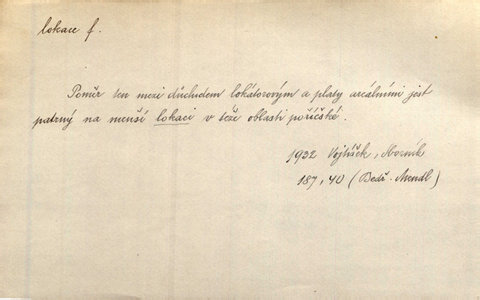 lokace f.
Poměr ten mezi důchodem lokátorovým a platy areálními jest
patrný na menší lokaci v téže oblasti poříčské.
1932 Vojtíšek, Sborník
187, 40 (Bedř. Mendl)